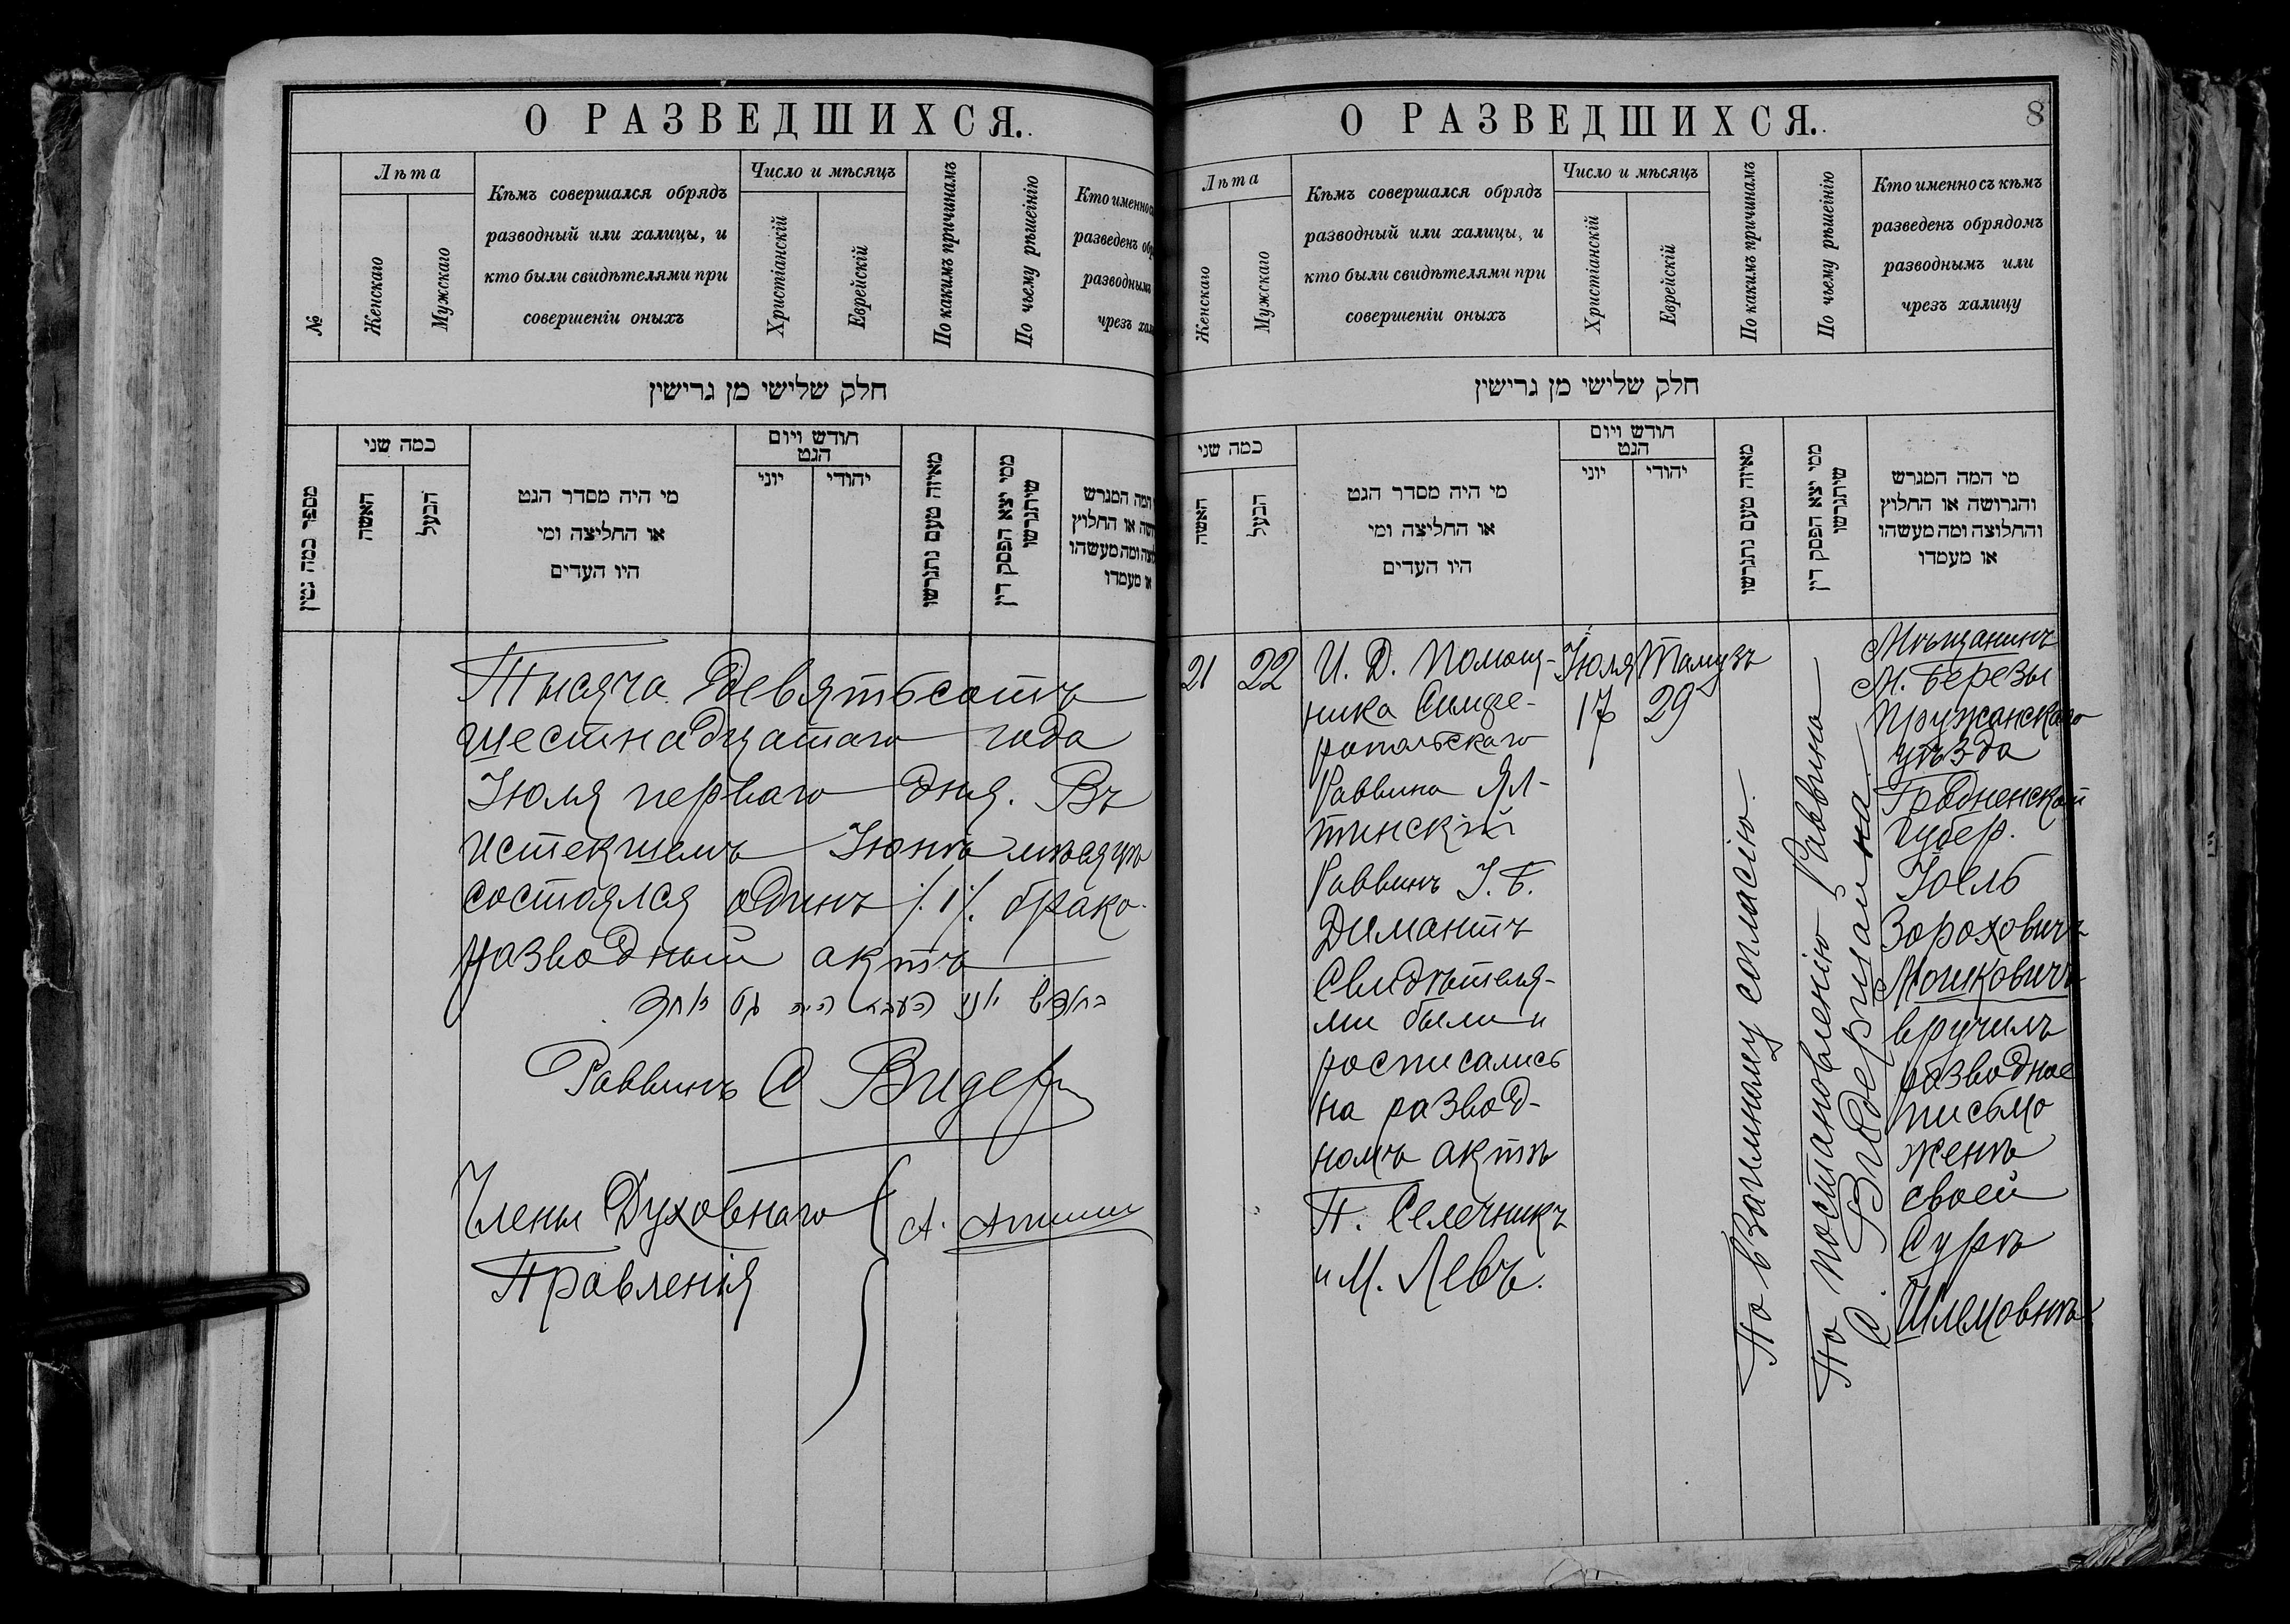 О РАЗВЕДШИХСЯ.
№
Лѣта
Женскаго
Мужскаго
Кѣмъ совершался обрядъ
разводный или халицы, и
кто были свидѣтелями при
совершеніи оныхъ
Число и мѣсяцъ
Христіанскій
Еврейскій
По какимъ причинамъ
По чьему рѣшеінію
Кто именно съ
разведенъ обр
разводнымъ
чрезъ хал
חלק שלישי מן גרישין
מספר כמה גטין
כמה שני
האשה
הבעל
מי היה מסדר הגט
או החליצה ומי
היו העדים
חודש ויום
הגט
יוני
יהודי
מאיזה טעם נתגרשו
ממי יצא הפסק דין
שיתגרשו
המה המגרש
ושה או החלוץ
וצה ומה מעשהו
או מעמדו
Тысяча Девятьсотъ
шестнадцатаго года
Іюля перваго дня. Въ
истекшемъ Іюнѣ мѣсяцѣ
состоялся одинъ /.1/. брако-
разводный актъ
Раввинъ С Видер
Члены Духовнаго
Правленія
О РАЗВЕДШИХСЯ.
8
Лѣта
Женскаго
Мужскаго
Кѣмъ совершался обрядъ
разводный или халицы, и
кто были свидѣтелями при
совершеніи оныхъ
Число и мѣсяцъ
Христіанскій
Еврейскій
По какимъ причинамъ
По чьему рѣшеінію
Кто именно съ кѣмъ
разведенъ обрядомъ
разводнымъ или
чрезъ халицу
חלק שלישי מן גרישין
כמה שני
האשה
הבעל
מי היה מסדר הגט
או החליצה ומי
היו העדים
חודש ויום
הגט
יוני
יהודי
מאיזה טעם נתגרשו
ממי יצא הפסק דין
שיתגרשו
מי המה המגרש
והגרושה או החלוץ
והחלוצה ומה מעשהו
או מעמדו
21
22
И. Д. Помощ-
ника Симфе-
ропольскаго
Раввина Ял-
тинскій
Раввинъ І. Б.
Димантъ
Свидѣтеля-
ми были и
росписались
на развод-
номъ актѣ
П. Селечникъ
и М. Левъ.
Іюля
17
Тамузъ
29
По взаимному согласію.
По постановленію Раввина
С. Видержана.
Мѣщанинъ
М. Березы
Пружанскаго
уѣзда
Гродненской
губер.
Іоель
Зороховичъ
Мошковичъ
вручилъ
разводное
письмо
женѣ
своей
Сурѣ
Шлемовнѣ.